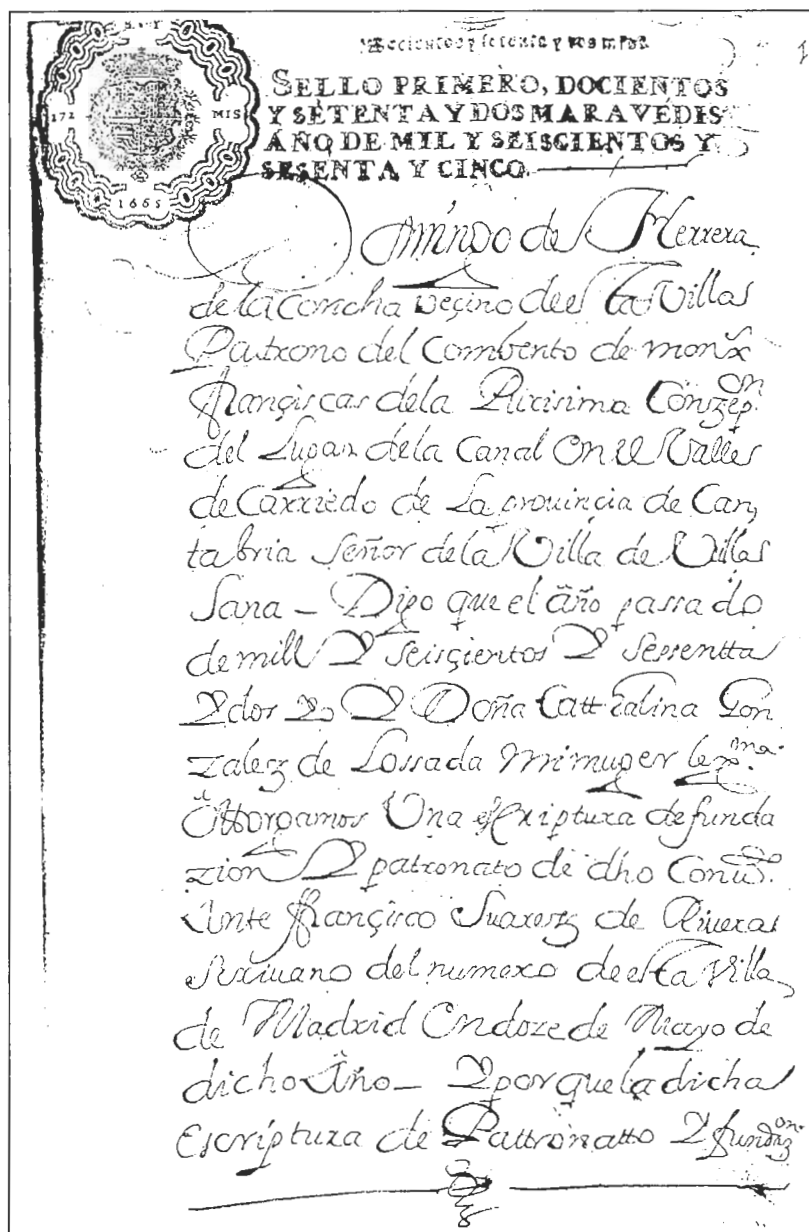 SELLO PRIMERO, DOCIENTOS
Y SETENTA Y DOS MARAVEDIS
AÑO DE MIL Y SEISCIENTOS Y
SESENTA Y CINCO.
272 MIS
1665
de Herrera
de la Concha veçino de esta Villa
Patrono del Combento de monxs
françiscas de la Purisima Conzepon
del Lugar de la Canal en el Valle
de Carriedo de La prouinçia de Can
tabria señor de la Villa de Villa
sana – Digo que el año passado
de mill Y seisçientos Y sessentta
Y dos Yo Y Doña Cattalina Gon
zalez de Lossada mi muger lexma.
Ottorgamos Una escriptura de funda
zion Y patronato de dho Conuto.
Ante françisco Suarez de Riuera
escriuano del numero de esta Villa
de Madrid En doze de Mayo de
dicho Año – Y por que la dicha
Escriptura de Pattronatto Y fundazon.